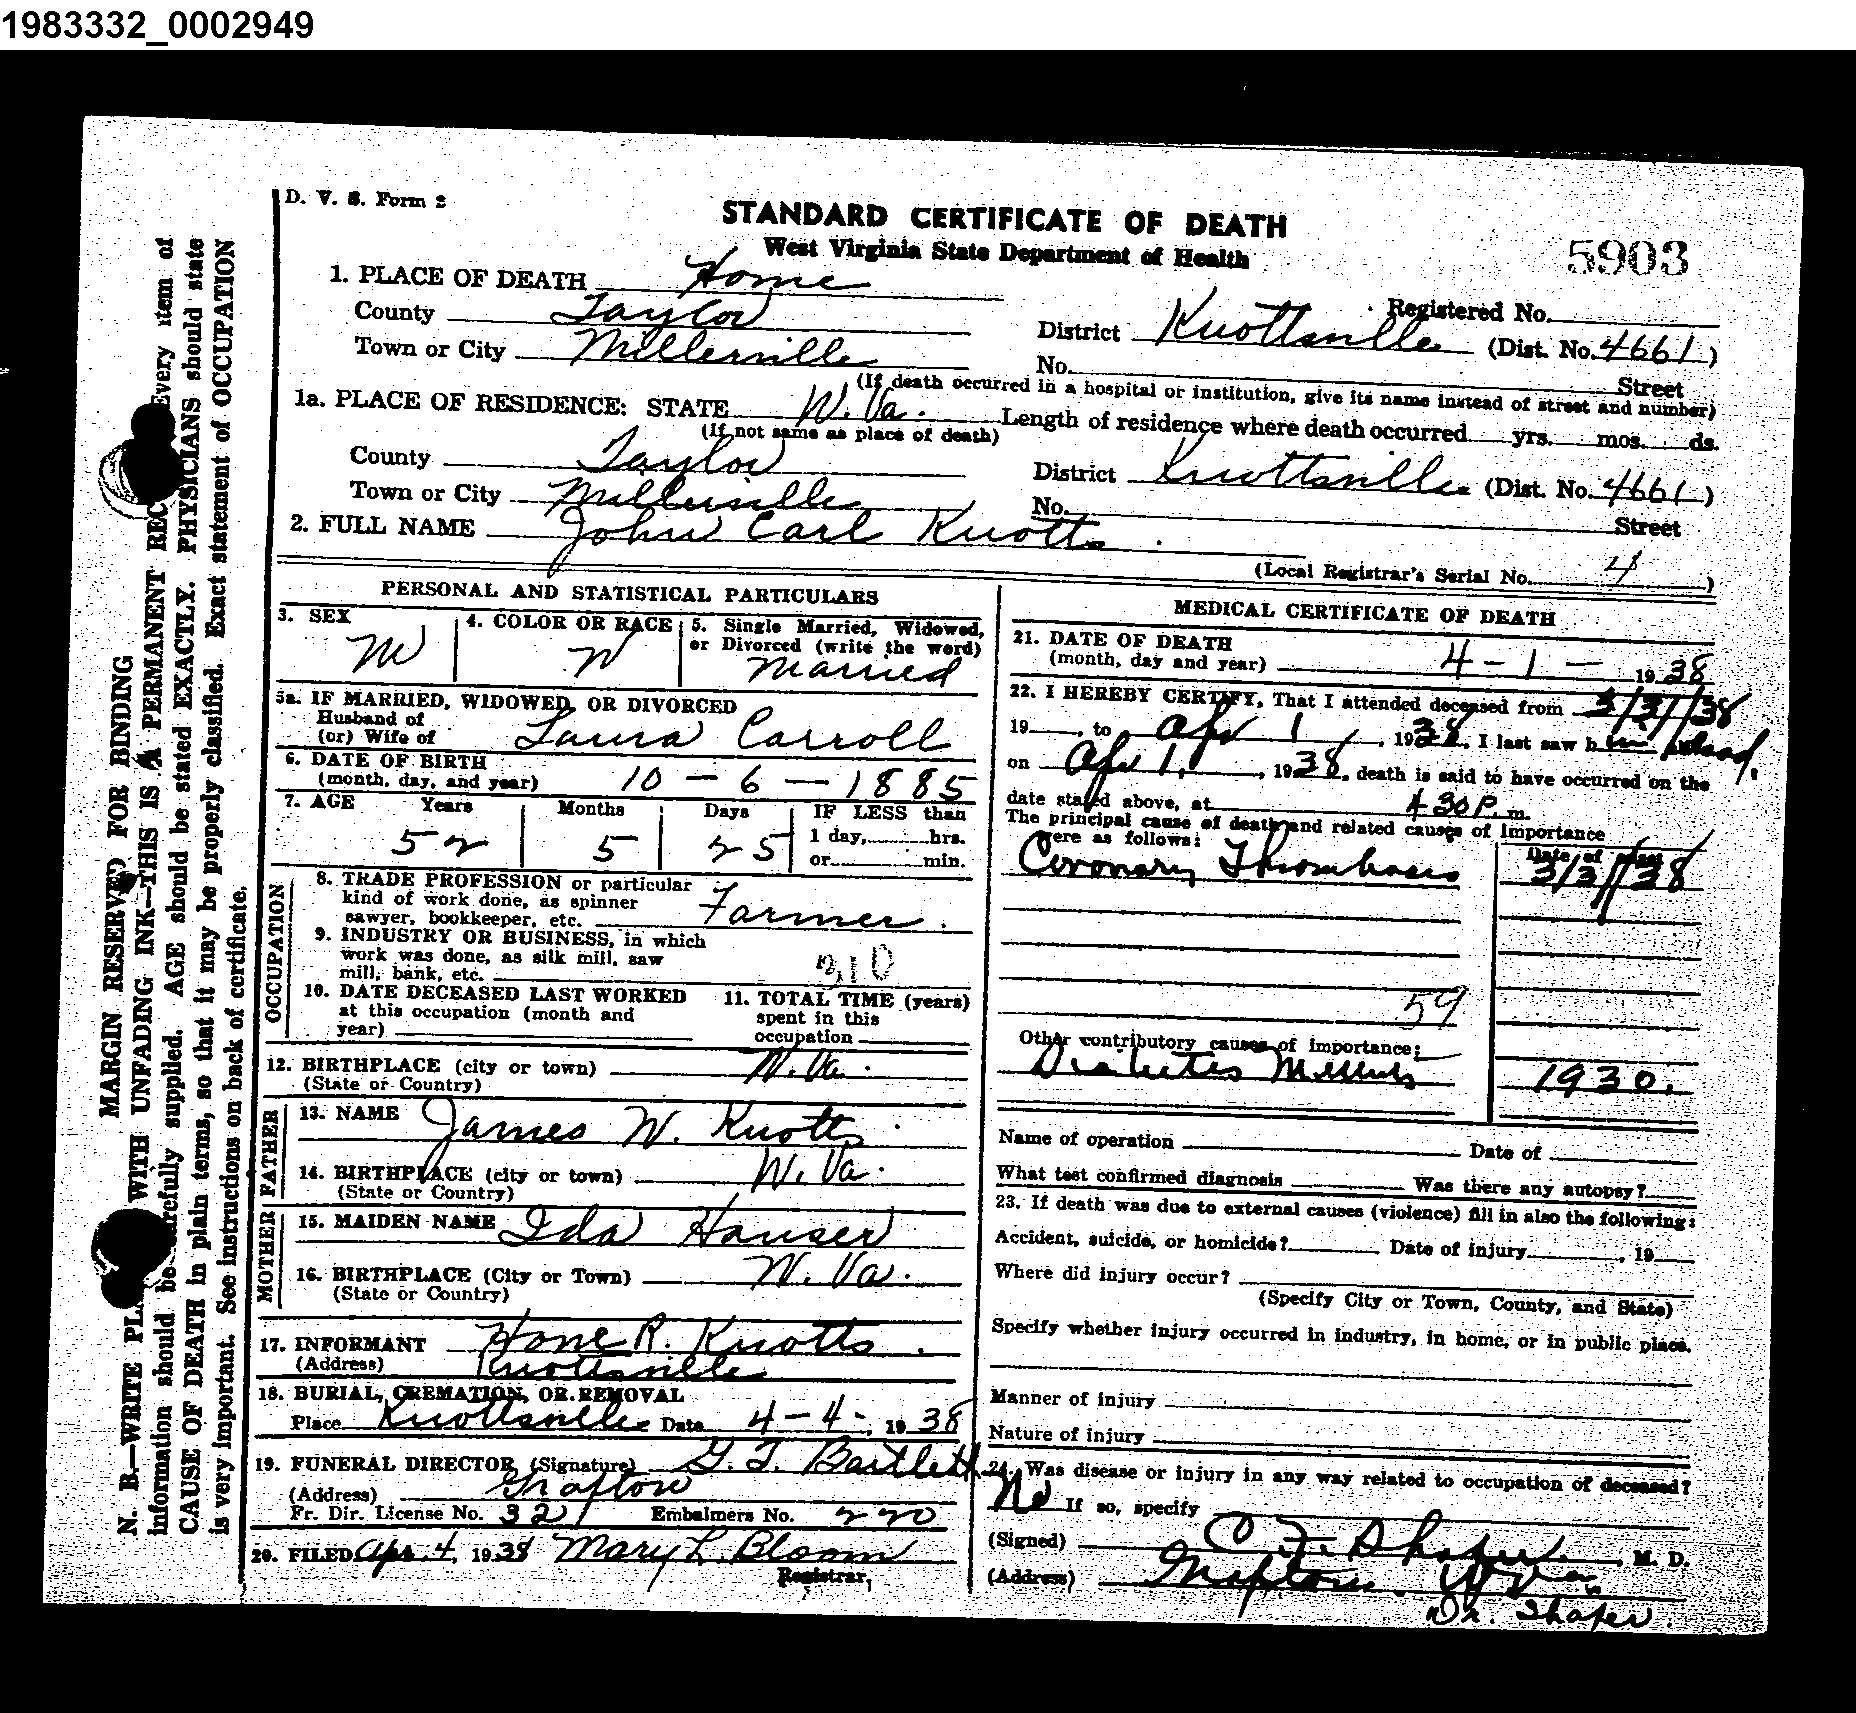 1983332_0002949
D. V. S. Form 2
STANDARD CERTIFICATE OF DEATH
West Virginia State Department of Health
5903
1. PLACE OF DEATH Home
Registered No.
County Taylor
District Knottsville (Dist. No. 4661)
Town or City Millerville
No. Street
(If death occurred in a hospital or institution, give its name instead of street and number)
1a. PLACE OF RESIDENCE: STATE W. Va. Length of residence where death occurred yrs. mos. ds.
(If not same as place of death)
County Taylor
District Knottsville (Dist. No. 4661)
Town or City Millerville
No. Street
2. FULL NAME John Carl Knotts
(Local Registrar's Serial No. 4)
PERSONAL AND STATISTICAL PARTICULARS
3. SEX
M
4. COLOR OR RACE
W
5. Single Married, Widowed,
or Divorced (write the word)
Married
5a. IF MARRIED, WIDOWED, OR DIVORCED
Husband of
(or) Wife of Laura Carroll
6. DATE OF BIRTH
(month, day, and year) 10 - 6 - 1885
7. AGE Years Months Days IF LESS than
52 5 25 1 day, hrs.
or min.
OCCUPATION
8. TRADE PROFESSION or particular
kind of work done, as spinner
sawyer, bookkeeper, etc. Farmer.
9. INDUSTRY OR BUSINESS, in which
work was done, as silk mill, saw
mill, bank, etc.
10. DATE DECEASED LAST WORKED
at this occupation (month and
year)
11. TOTAL TIME (years)
spent in this
occupation
12. BIRTHPLACE (city or town) W. Va.
(State or Country)
FATHER
13. NAME James W. Knotts
14. BIRTHPLACE (city or town) W. Va.
(State or Country)
MOTHER
15. MAIDEN NAME Ida Hauser
16. BIRTHPLACE (City or Town) W. Va.
(State or Country)
17. INFORMANT R. Knotts
(Address) Knottsville
18. BURIAL, CREMATION, OR REMOVAL
Place Knottsville Date 4 - 4 - , 19 38
19. FUNERAL DIRECTOR (Signature) G. T. Bartlett
(Address) Grafton
Fr. Dir. License No. 321 Embalmers No. 220
20. FILED Apr. 4, 1938 Mary L. Bloom
Registrar,
MEDICAL CERTIFICATE OF DEATH
21. DATE OF DEATH
(month, day and year) 4 - 1 - 19 38
22. I HEREBY CERTIFY, That I attended deceased from 3/31/38
19 , to Apr 1 , 1938. I last saw him dead.
on Apr 1, , 1938, death is said to have occurred on the
date stated above, at 430 P. m.
The principal cause of death and related causes of importance
were as follows:
Date of onset
Coronary Thrombosis 3/31/38
59
Other contributory causes of importance:
Diabetes Mellitus 1930.
Name of operation Date of
What test confirmed diagnosis Was there any autopsy?
23. If death was due to external causes (violence) fill in also the following:
Accident, suicide, or homicide? Date of injury , 19
Where did injury occur?
(Specify City or Town, County, and State)
Specify whether injury occurred in industry, in home, or in public place.
Manner of injury
Nature of injury
24. Was disease or injury in any way related to occupation of deceased?
No If so, specify
(Signed) C. F. Shafer M. D.
(Address) Grafton W Va
Dr. Shafer.
MARGIN RESERVED FOR BINDING
N. B.—WRITE WITH UNFADING INK—THIS IS A PERMANENT Every item of
information should be carefully supplied. AGE should be stated EXACTLY. PHYSICIANS should state
CAUSE OF DEATH in plain terms, so that it may be properly classified. Exact statement of OCCUPATION
is very important. See instructions on back of certificate.